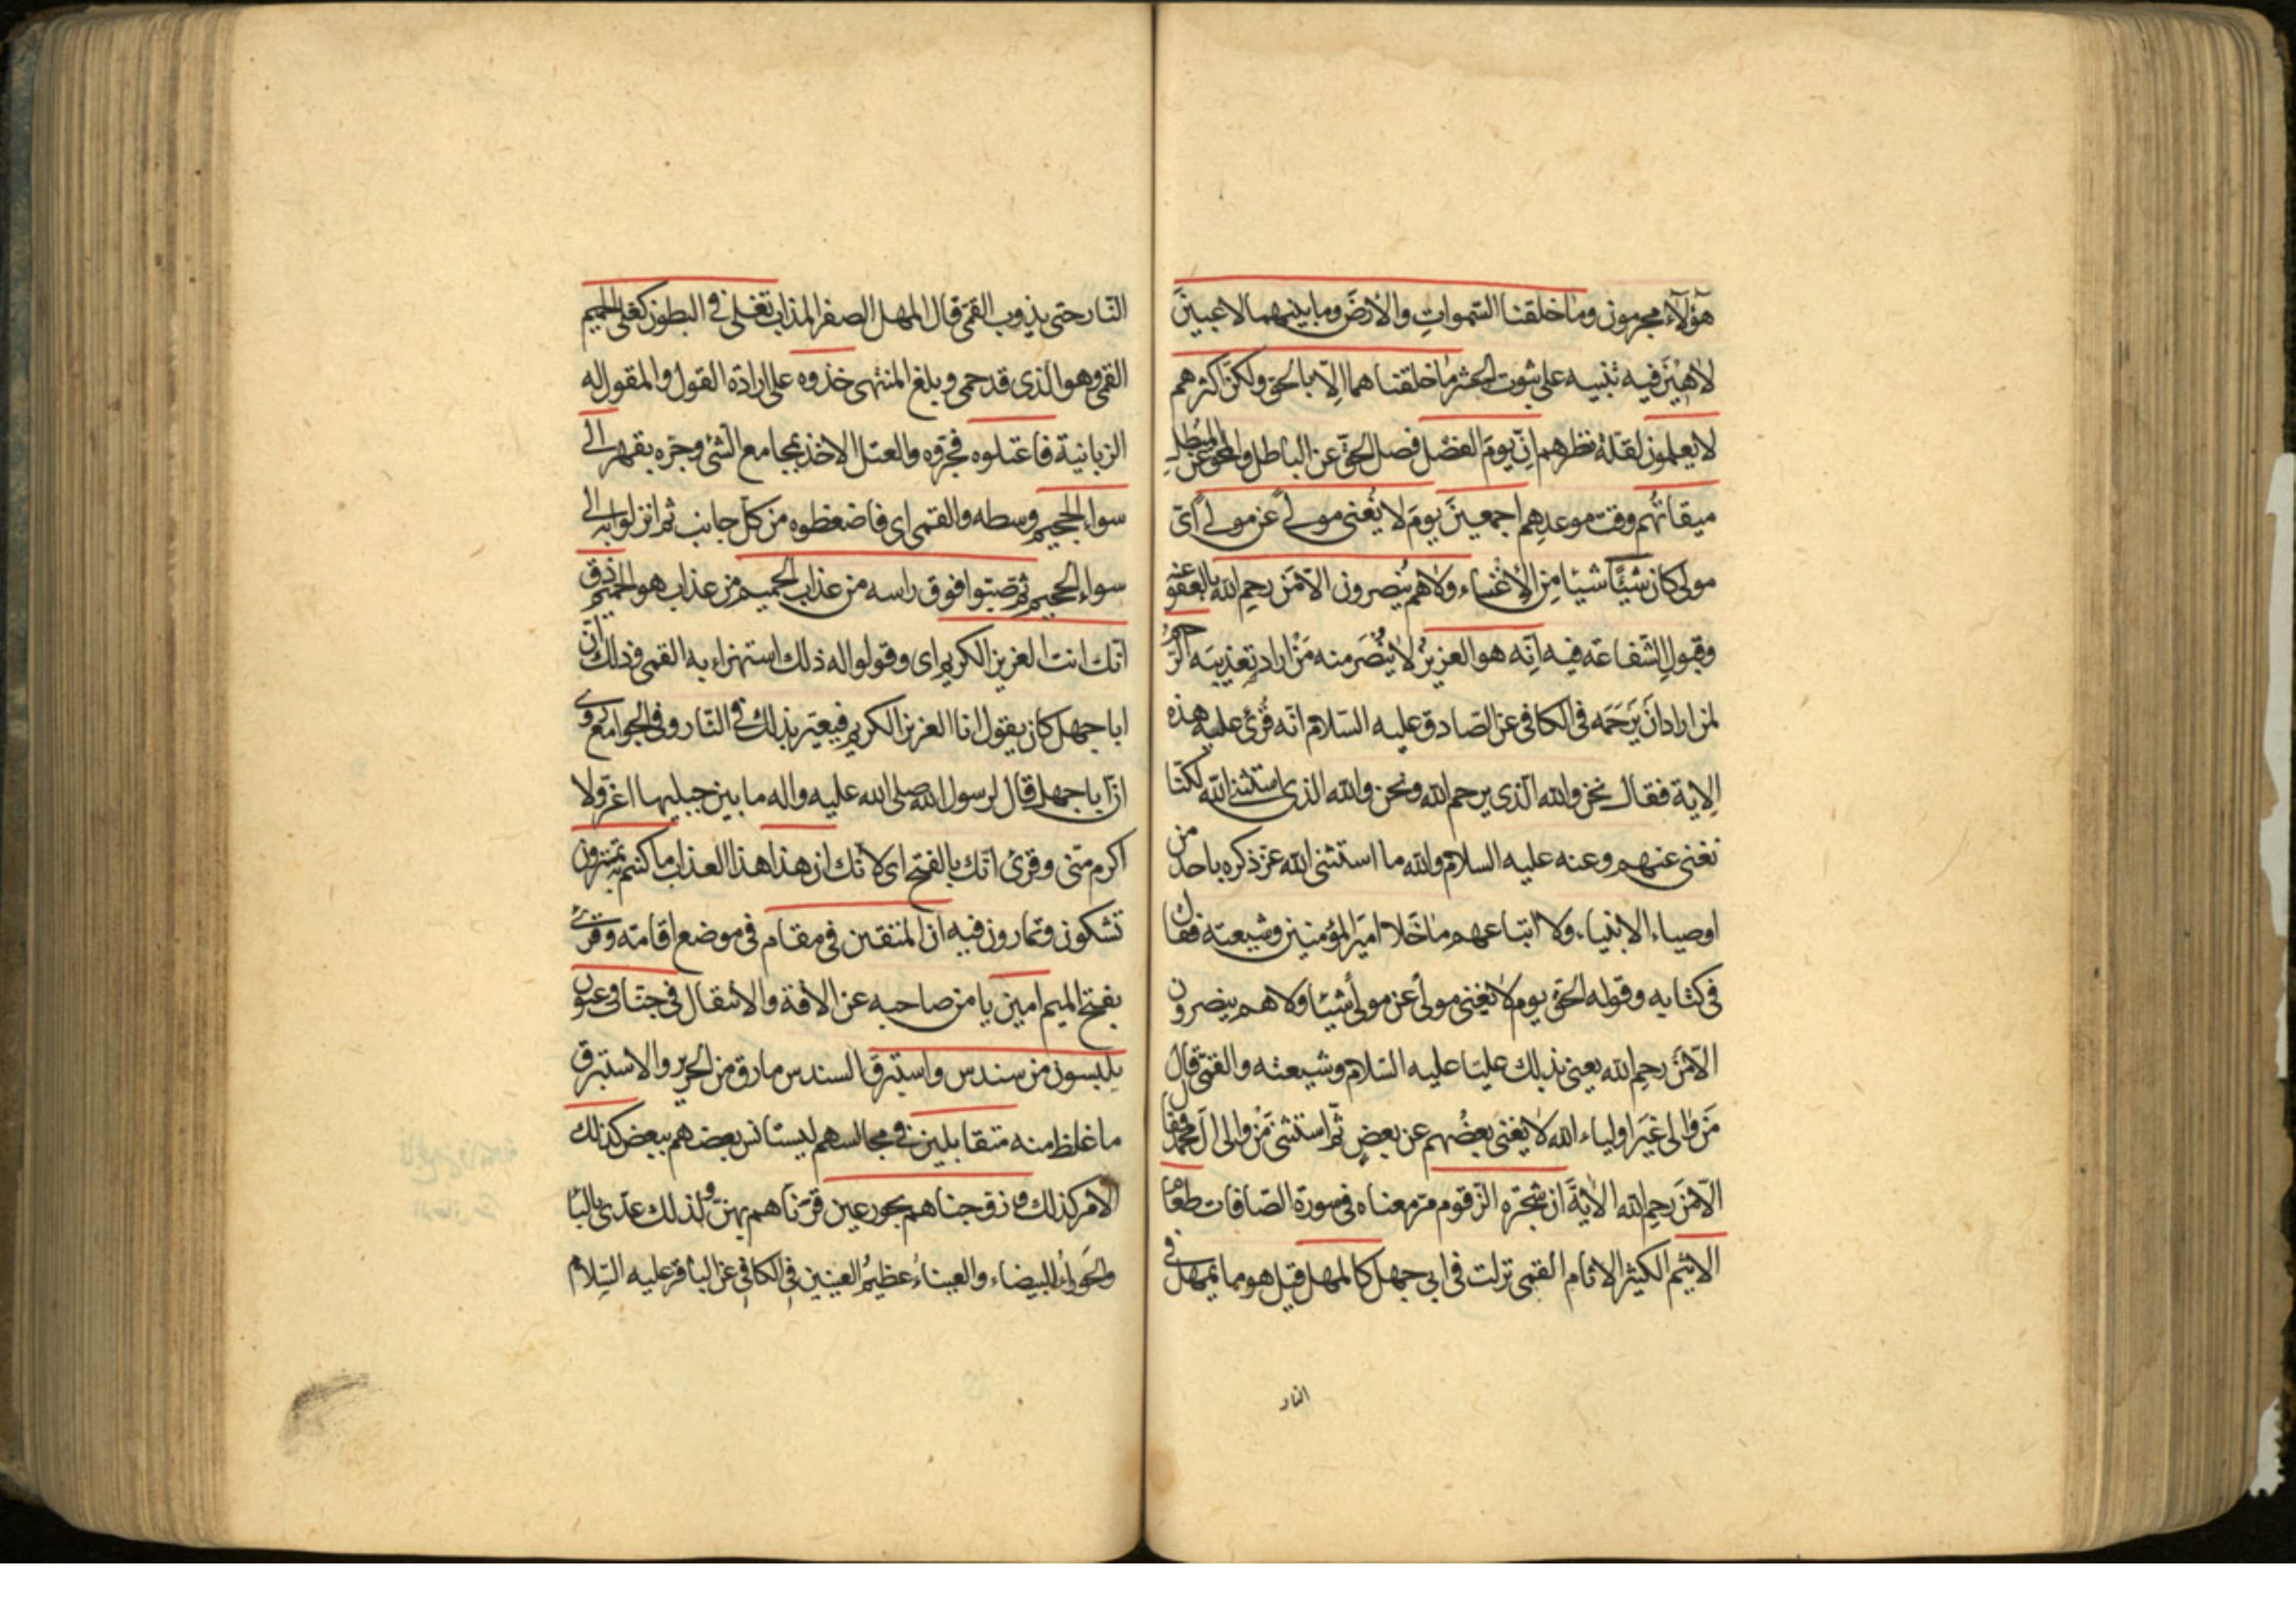 هؤلاء مجرمون وما خلقنا السموات والأرض وما بينهما لاعبين
لاهين فيه تنبيه على ثبوت الحشر ما خلقناهما الا بالحق ولكن اكثرهم
لا يعلمون لقلة نظرهم ان يوم الفصل فصل الحق عن الباطل والمحق عن المبطل
ميقاتهم وقت موعدهم اجمعين يوم لا يغنى مولى عن مولى اى
مولى كان شيئا شيئا من الاغناء ولا هم ينصرون الا من رحم الله بالعفو عنه
وقبول الشفاعة فيه انه هو العزيز لا ينصر منه من اراد تعذيبه الرحيم
لمن اراد ان يرحمه فى الكافى عن الصادق عليه السلام انه قرئ عليه هذه
الاية فقال نحن والله الذى يرحم الله ونحن والله الذى استثنى الله لكنا
نغنى عنهم وعنه عليه السلام والله ما استثنى الله عز ذكره باحد من
اوصياء الانبياء ولا اتباعهم ما خلا امير المؤمنين وشيعته فقال
فى كتابه وقوله الحق يوم لا يغنى مولى عن مولى شيئا ولا هم ينصرون
الا من رحم الله يعنى بذلك عليا عليه السلام وشيعته والقمى قال
من والى غير اولياء الله لا يغنى بعضهم عن بعض ثم استثنى من والى ال محمد فقال
الا من رحم الله الاية ان شجرة الزقوم مر معناه فى سورة الصافات طعام
الاثيم الكثير الاثام القمى نزلت فى ابى جهل كالمهل قيل هو ما يمهل فى
النار
النار حتى يذوب القمى قال المهل الصفر المذاب تغلى فى البطون كغلى الحميم
القمى وهو الذى قد حمى وبلغ المنتهى خذوه على ارادة القول والمقول له
الزبانية فاعتلوه فجروه والعتل الاخذ بمجامع الشئ وجره بقهر الى
سواء الجحيم وسطه والقمى اى فاضغطوه من كل جانب ثم انزلوا به الى
سواء الجحيم ثم صبوا فوق راسه من عذاب الحميم من عذاب هو الحميم ذق
انك انت العزيز الكريم اى وقولوا له ذلك استهزاء به القمى وذلك ان
ابا جهل كان يقول انا العزيز الكريم فيعير بذلك فى النار وفى الجوامع روى
ان ابا جهل قال لرسول الله صلى الله عليه واله ما بين جبليها اعز ولا
اكرم منى وقرئ انك بالفتح اى لانك ان هذا هذا العذاب ما كنتم به تمترون
تشكون وتمارون فيه ان المتقين فى مقام فى موضع اقامة وقرئ
بفتح الميم امين يا من صاحبه عن الافة والانتقال فى جنات وعيون
يلبسون من سندس واستبرق السندس ما رق من الحرير والاستبرق
ما غلظ منه متقابلين فى مجالسهم ليستانس بعضهم ببعض كذلك
الامر كذلك وزوجناهم بحور عين قرناهم بهن ولذلك عدى بالباء
والحوراء البيضاء والعيناء عظيم العينين فى الكافى عن الباقر عليه السلام